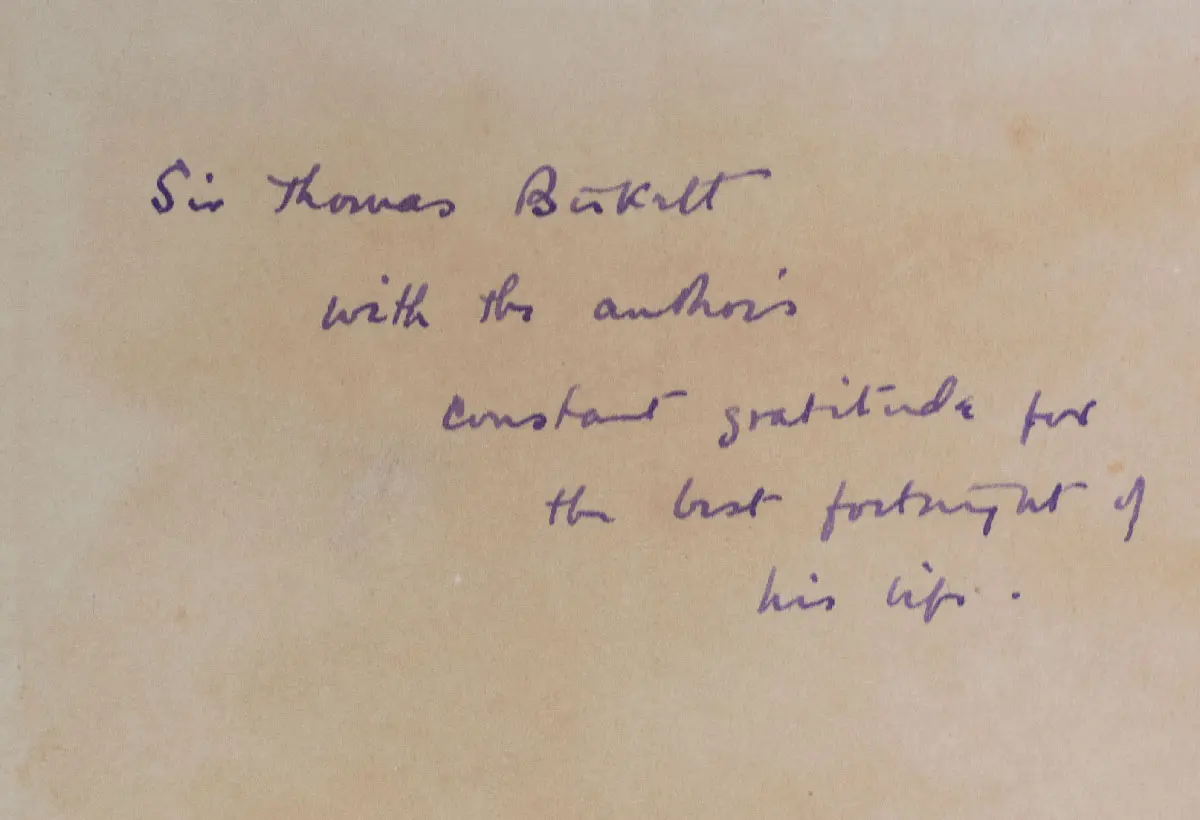 Sir Thomas Birkett
with the author's
constant gratitude for
the best fortnight of
his life.